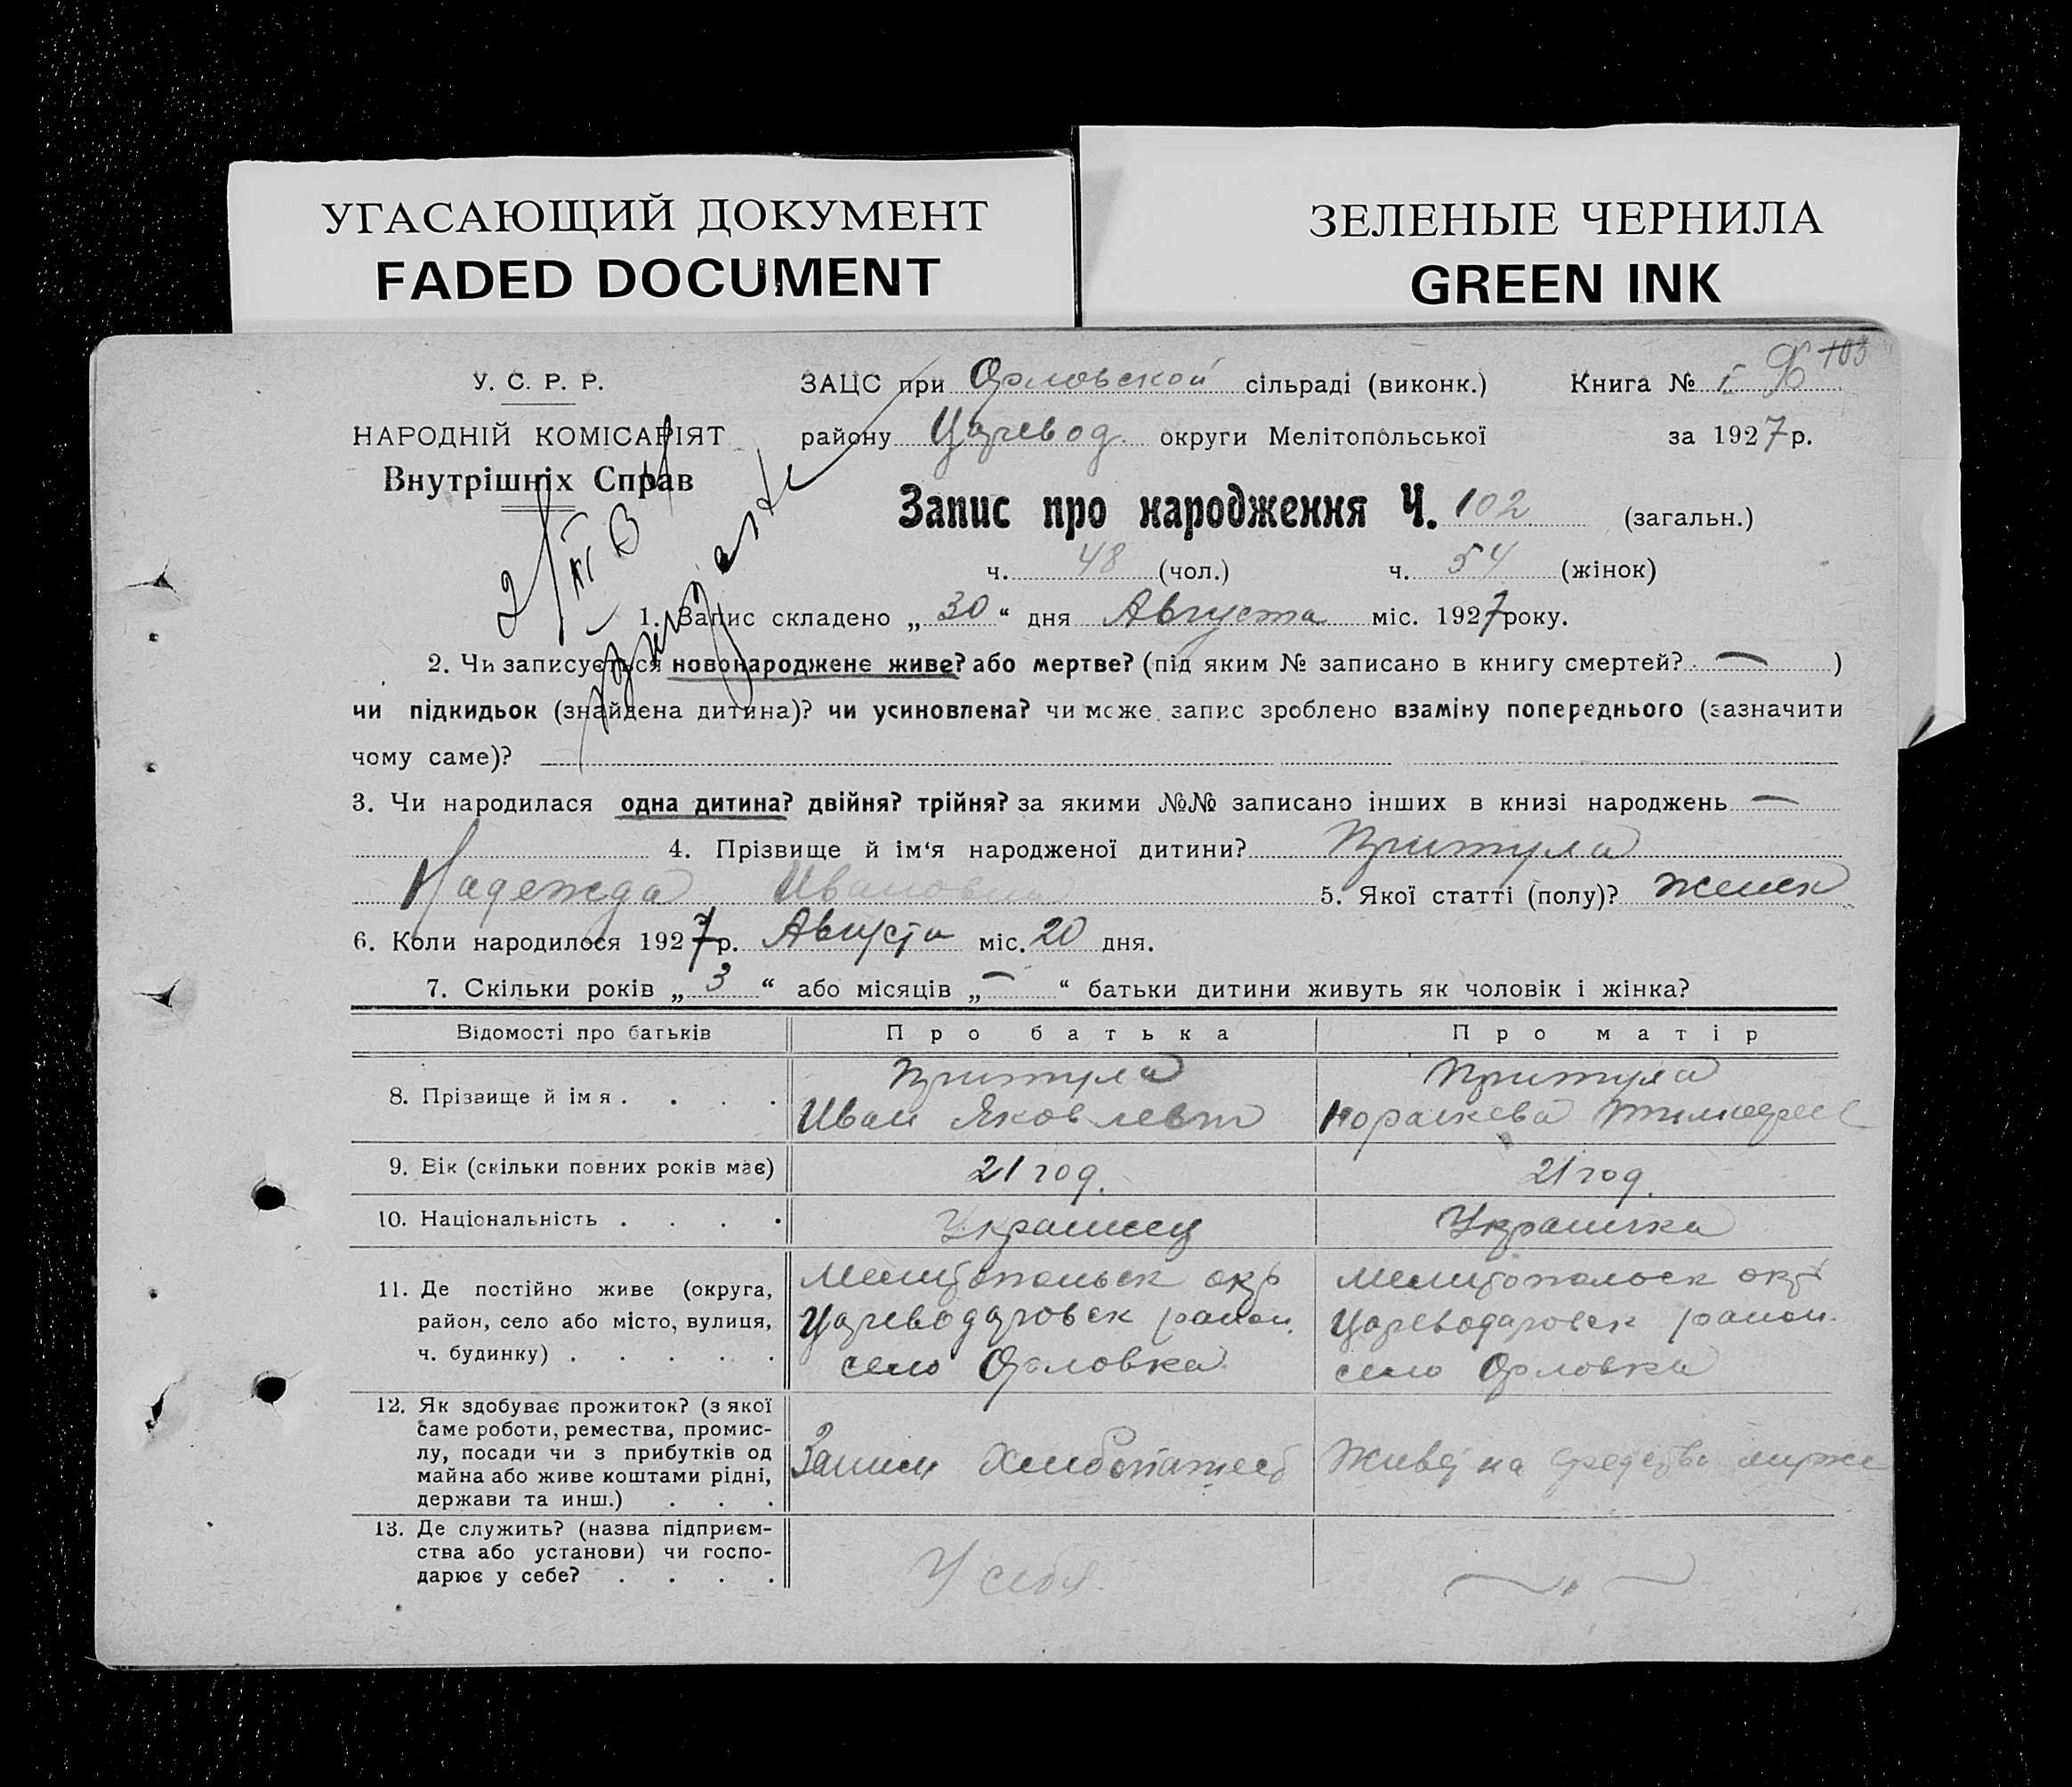 УГАСАЮЩИЙ ДОКУМЕНТ
FADED DOCUMENT
ЗЕЛЕНЫЕ ЧЕРНИЛА
GREEN INK
У. С. Р. Р.
НАРОДНІЙ КОМІСАРІЯТ
Внутрішніх Справ
ЗАЦС при Орловской сільраді (виконк.)
Книга № I 103
району Царевод. округи Мелітопольської
за 1927 р.
Запис про народження Ч. 102 (загальн.)
ч. 48 (чол.) ч. 54 (жінок)
1. Запис складено „30“ дня Августа міс. 1927 року.
2. Чи записується новонароджене живе? або мертве? (під яким № записано в книгу смертей? — )
чи підкидьок (знайдена дитина)? чи усиновлена? чи може запис зроблено взаміну попереднього (зазначити
чому саме)?
3. Чи народилася одна дитина? двійня? трійня? за якими №№ записано інших в книзі народжень —
4. Прізвище й ім‘я народженої дитини? Притула
Надежда Ивановна 5. Якої статті (полу)? женск
6. Коли народилося 1927 р. Августа міс. 20 дня.
7. Скільки років „3“ або місяців „—“ батьки дитини живуть як чоловік і жінка?
Відомості про батьків Про батька Про матір
8. Прізвище й імя . . . .
Притула
Иван Яковлевич
Притула
9. Вік (скільки повних років має) 21 год. 21 год.
10. Національність . . . . Украинец Украинка
11. Де постійно живе (округа,
район, село або місто, вулиця,
ч. будинку) . . . . .
Мелитопольск окр
Цареводаровск район.
село Орловка
Мелитопольск окр
Цареводаровск район.
село Орловка
12. Як здобуває прожиток? (з якої
саме роботи, ремества, промис-
лу, посади чи з прибутків од
майна або живе коштами рідні,
держави та инш.) . . .
Живет на средства мужа
13. Де служить? (назва підприєм-
ства або установи) чи госпо-
дарює у себе? . . . .
У себя
— „ —